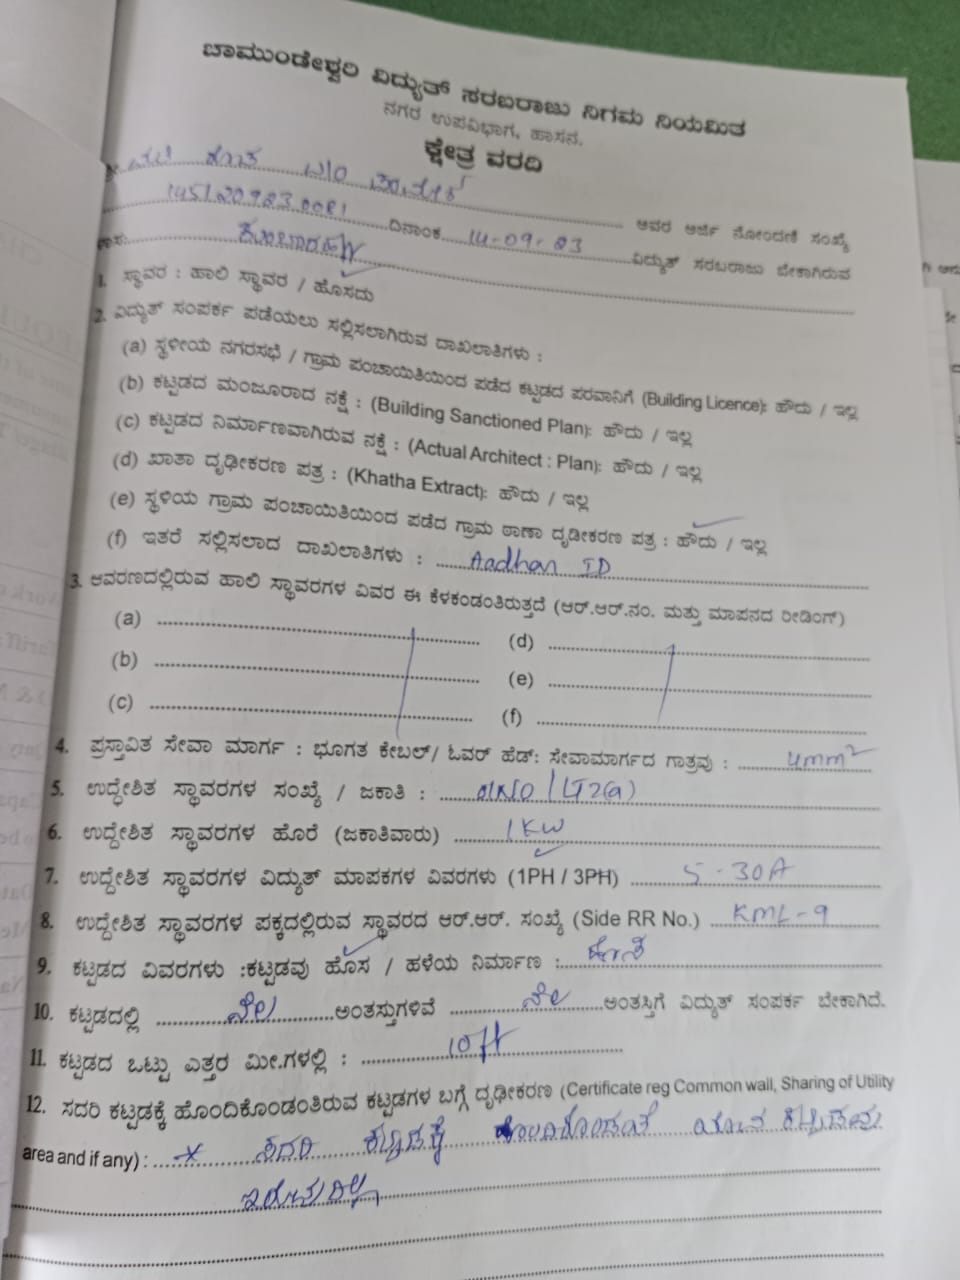 ಚಾಮುಂಡೇಶ್ವರಿ ವಿದ್ಯುತ್ ಸರಬರಾಜು ನಿಗಮ ನಿಯಮಿತ
ನಗರ ಉಪವಿಭಾಗ, ಹಾಸನ.
ಕ್ಷೇತ್ರ ವರದಿ
ಅವರ ಅರ್ಜಿ ನೋಂದಣಿ ಸಂಖ್ಯೆ
145120983.0081 ದಿನಾಂಕ 14-09-23 ವಿದ್ಯುತ್ ಸರಬರಾಜು ಬೇಕಾಗಿರುವ
1. ಸ್ಥಾವರ : ಹಾಲಿ ಸ್ಥಾವರ / ಹೊಸದು
2. ವಿದ್ಯುತ್ ಸಂಪರ್ಕ ಪಡೆಯಲು ಸಲ್ಲಿಸಲಾಗಿರುವ ದಾಖಲಾತಿಗಳು :
(a) ಸ್ಥಳೀಯ ನಗರಸಭೆ / ಗ್ರಾಮ ಪಂಚಾಯಿತಿಯಿಂದ ಪಡೆದ ಕಟ್ಟಡದ ಪರವಾನಿಗೆ (Building Licence): ಹೌದು / ಇಲ್ಲ
(b) ಕಟ್ಟಡದ ಮಂಜೂರಾದ ನಕ್ಷೆ : (Building Sanctioned Plan): ಹೌದು / ಇಲ್ಲ
(c) ಕಟ್ಟಡದ ನಿರ್ಮಾಣವಾಗಿರುವ ನಕ್ಷೆ : (Actual Architect : Plan): ಹೌದು / ಇಲ್ಲ
(d) ಖಾತಾ ದೃಢೀಕರಣ ಪತ್ರ : (Khatha Extract): ಹೌದು / ಇಲ್ಲ
(e) ಸ್ಥಳಿಯ ಗ್ರಾಮ ಪಂಚಾಯಿತಿಯಿಂದ ಪಡೆದ ಗ್ರಾಮ ಠಾಣಾ ದೃಡೀಕರಣ ಪತ್ರ : ಹೌದು / ಇಲ್ಲ
(f) ಇತರೆ ಸಲ್ಲಿಸಲಾದ ದಾಖಲಾತಿಗಳು : Aadhar ID
3. ಆವರಣದಲ್ಲಿರುವ ಹಾಲಿ ಸ್ಥಾವರಗಳ ವಿವರ ಈ ಕೆಳಕಂಡಂತಿರುತ್ತದೆ (ಆರ್.ಆರ್.ನಂ. ಮತ್ತು ಮಾಪನದ ರೀಡಿಂಗ್)
(a) (d)
(b) (e)
(c) (f)
4. ಪ್ರಸ್ತಾವಿತ ಸೇವಾ ಮಾರ್ಗ : ಭೂಗತ ಕೇಬಲ್/ ಓವರ್ ಹೆಡ್: ಸೇವಾಮಾರ್ಗದ ಗಾತ್ರವು : 4mm²
5. ಉದ್ಧೇಶಿತ ಸ್ಥಾವರಗಳ ಸಂಖ್ಯೆ / ಜಕಾತಿ : 01NO / LT2(a)
6. ಉದ್ದೇಶಿತ ಸ್ಥಾವರಗಳ ಹೊರೆ (ಜಕಾತಿವಾರು) 1KW
7. ಉದ್ದೇಶಿತ ಸ್ಥಾವರಗಳ ವಿದ್ಯುತ್ ಮಾಪಕಗಳ ವಿವರಗಳು (1PH / 3PH) 5-30A
8. ಉದ್ದೇಶಿತ ಸ್ಥಾವರಗಳ ಪಕ್ಕದಲ್ಲಿರುವ ಸ್ಥಾವರದ ಆರ್.ಆರ್. ಸಂಖ್ಯೆ (Side RR No.) KML-9
9. ಕಟ್ಟಡದ ವಿವರಗಳು :ಕಟ್ಟಡವು ಹೊಸ / ಹಳೆಯ ನಿರ್ಮಾಣ :
10. ಕಟ್ಟಡದಲ್ಲಿ ನೆಲ ಅಂತಸ್ತುಗಳಿವೆ ನೆಲ ಅಂತಸ್ತಿಗೆ ವಿದ್ಯುತ್ ಸಂಪರ್ಕ ಬೇಕಾಗಿದೆ.
11. ಕಟ್ಟಡದ ಒಟ್ಟು ಎತ್ತರ ಮೀ.ಗಳಲ್ಲಿ : 10ft
12. ಸದರಿ ಕಟ್ಟಡಕ್ಕೆ ಹೊಂದಿಕೊಂಡಂತಿರುವ ಕಟ್ಟಡಗಳ ಬಗ್ಗೆ ದೃಢೀಕರಣ (Certificate reg Common wall, Sharing of Utility
area and if any) : ಸದರಿ ಕಟ್ಟಡಕ್ಕೆ ಹೊಂದಿಕೊಂಡಂತೆ ಯಾವ ಕಟ್ಟಡವು
ಇರುವುದಿಲ್ಲ